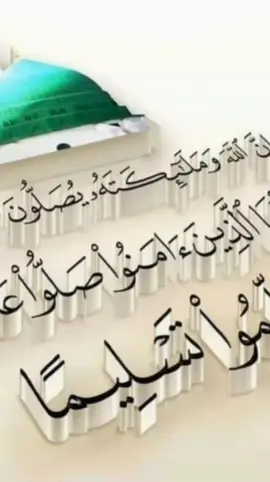 نَّ ٱللَّهَ وَمَلَٰٓئِكَتَهُۥ يُصَلُّونَ
ٱلَّذِينَ ءَامَنُوا۟ صَلُّوا۟ عَ
مُوا۟ تَسْلِيمًا